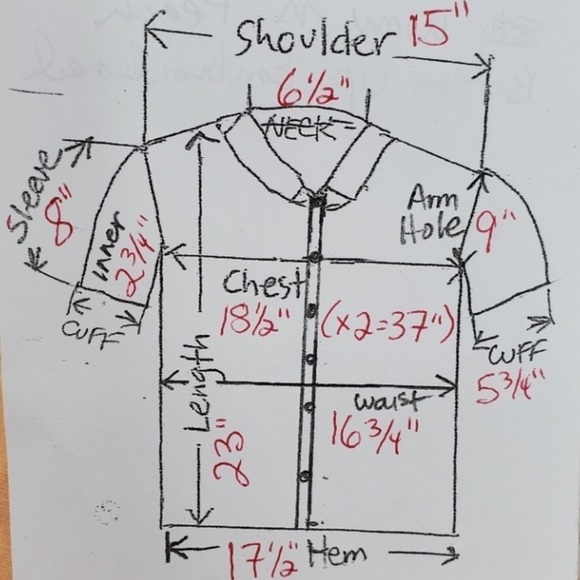 Shoulder 15"
6 1/2"
NECK
Sleeve
8"
inner
2 3/4"
Cuff
Arm
Hole
9"
Chest
18 1/2" (x2=37")
Length
23"
waist
16 3/4"
Cuff
5 3/4"
17 1/2" Hem